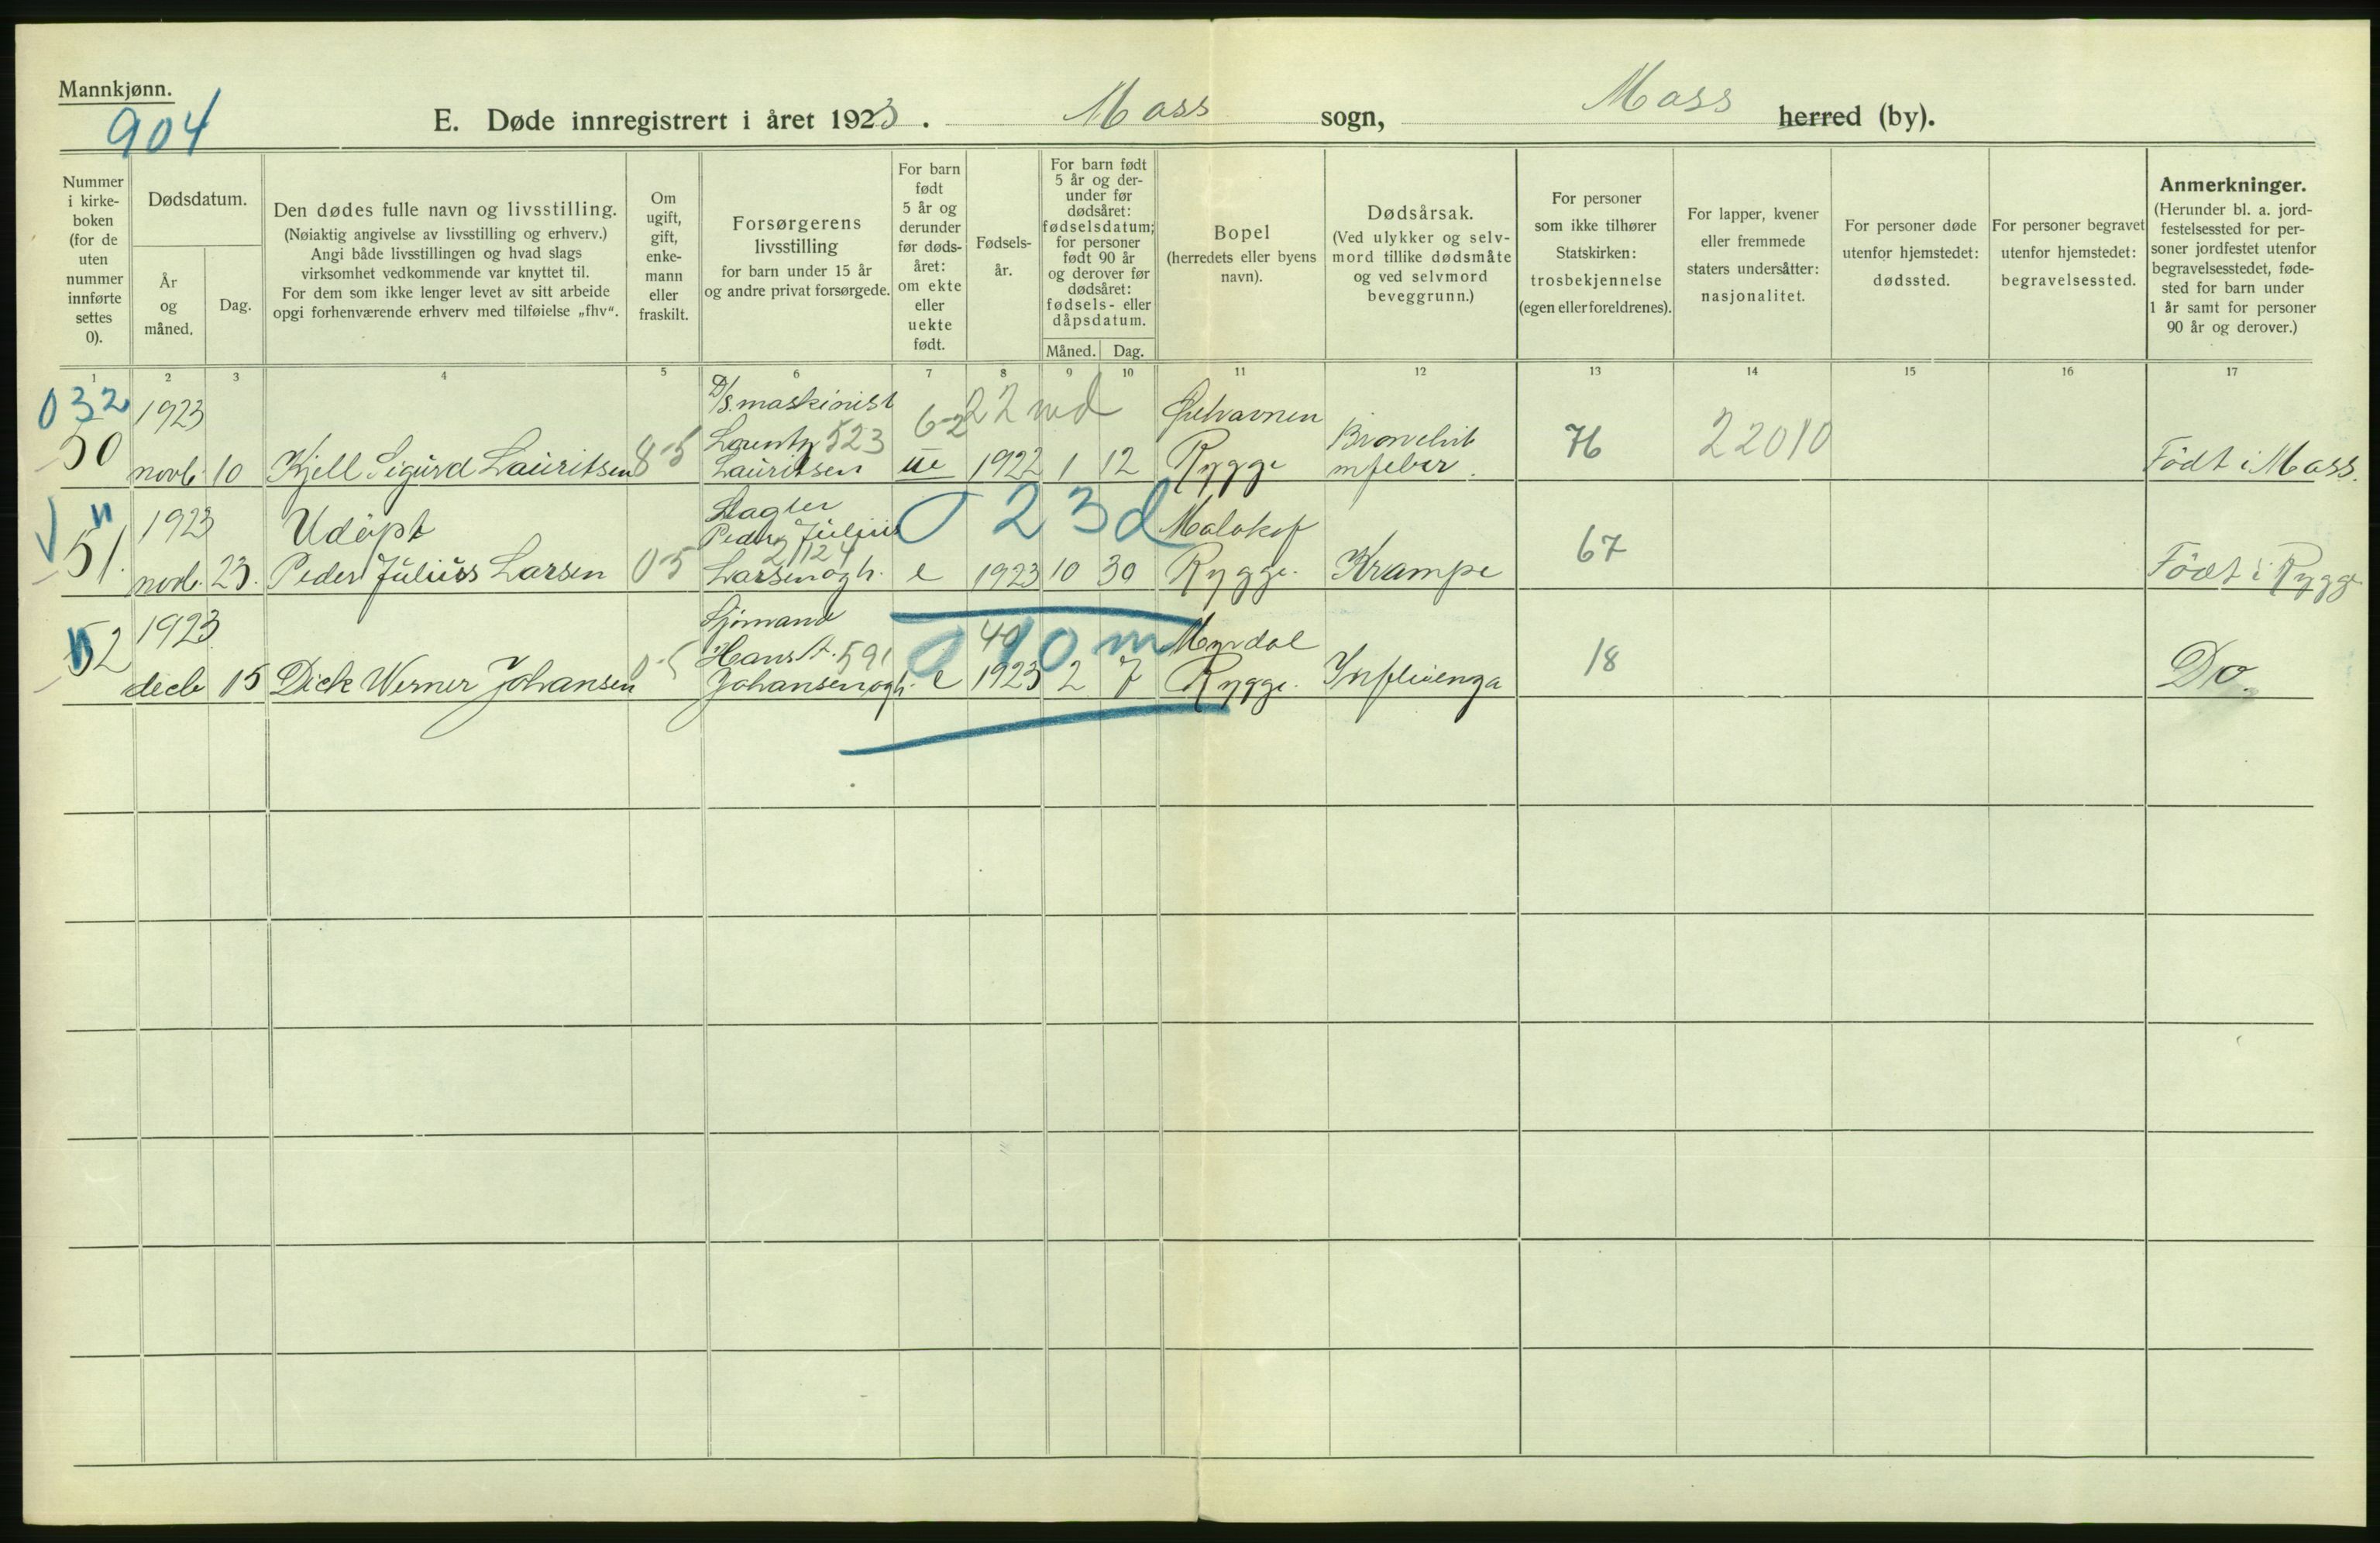 Mannkjønn.
904
E. Døde innregistrert i året 1923. Moss sogn, Moss herred (by).
Nummer
i kirke-
boken
(for de
uten
nummer
innførte
settes
0).
Dødsdatum.
År
og
måned.
Dag.
Den dødes fulle navn og livsstilling.
(Nøiaktig angivelse av livsstilling og erhverv.)
Angi både livsstillingen og hvad slags
virksomhet vedkommende var knyttet til.
For dem som ikke lenger levet av sitt arbeide
opgi forhenværende erhverv med tilføielse „fhv“.
Om
ugift,
gift,
enke-
mann
eller
fraskilt.
Forsørgerens
livsstilling
for barn under 15 år
og andre privat forsørgede.
For barn
født
5 år og
derunder
før døds-
året:
om ekte
eller
uekte
født.
Fødsels-
år.
For barn født
5 år og der-
under før
dødsåret:
fødselsdatum;
for personer
født 90 år
og derover før
dødsåret:
fødsels- eller
dåpsdatum.
Måned. Dag.
Bopel
(herredets eller byens
navn).
Dødsårsak.
(Ved ulykker og selv-
mord tillike dødsmåte
og ved selvmord
beveggrunn.)
For personer
som ikke tilhører
Statskirken:
trosbekjennelse
(egen eller foreldrenes).
For lapper, kvener
eller fremmede
staters undersåtter:
nasjonalitet.
For personer døde
utenfor hjemstedet:
dødssted.
For personer begravet
utenfor hjemstedet:
begravelsessted.
Anmerkninger.
(Herunder bl. a. jord-
festelsessted for per-
soner jordfestet utenfor
begravelsesstedet, føde-
sted for barn under
1 år samt for personer
90 år og derover.)
1 2 3 4 5 6 7 8 9 10 11 12 13 14 15 16 17
032 1923 D/S. maskinist 6-2 22 md
Lorentz 523 76 22010
50 novb. 10 Kjell Sigurd Lauritsen 8-5 Lauritsen ue 1922 1 12 Rygge mfeber. Født i Moss.
" 1923 Udøpt Slagter 0 23 d Malakof
Peder Julius 2124 67
51. novb. 23. Peder Julius Larsen 0-5 Larsen og h. e 1923 10 30 Rygge. Krampe Født i Rygge
" 1923 Sjømand 0 10 m 40 Myrdal
Hans A. 591 18
52 decb 15 Dick Werner Johansen 0-5 Johansen og h. e 1923 2 7 Rygge. Influenza Do.